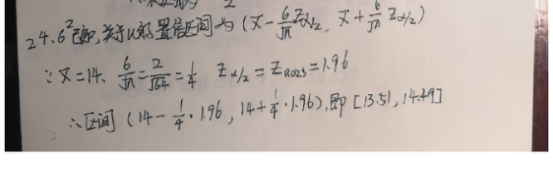 24. σ²已知, 关于μ的置信区间为 (x̄ - σ/√n Zα/2, x̄ + σ/√n Zα/2)
∵ x̄=14, σ/√n = 2/√64 = 1/4 Zα/2 = Z0.025 = 1.96
∴ 区间 (14 - 1/4 · 1.96, 14 + 1/4 · 1.96), 即 [13.51, 14.49]